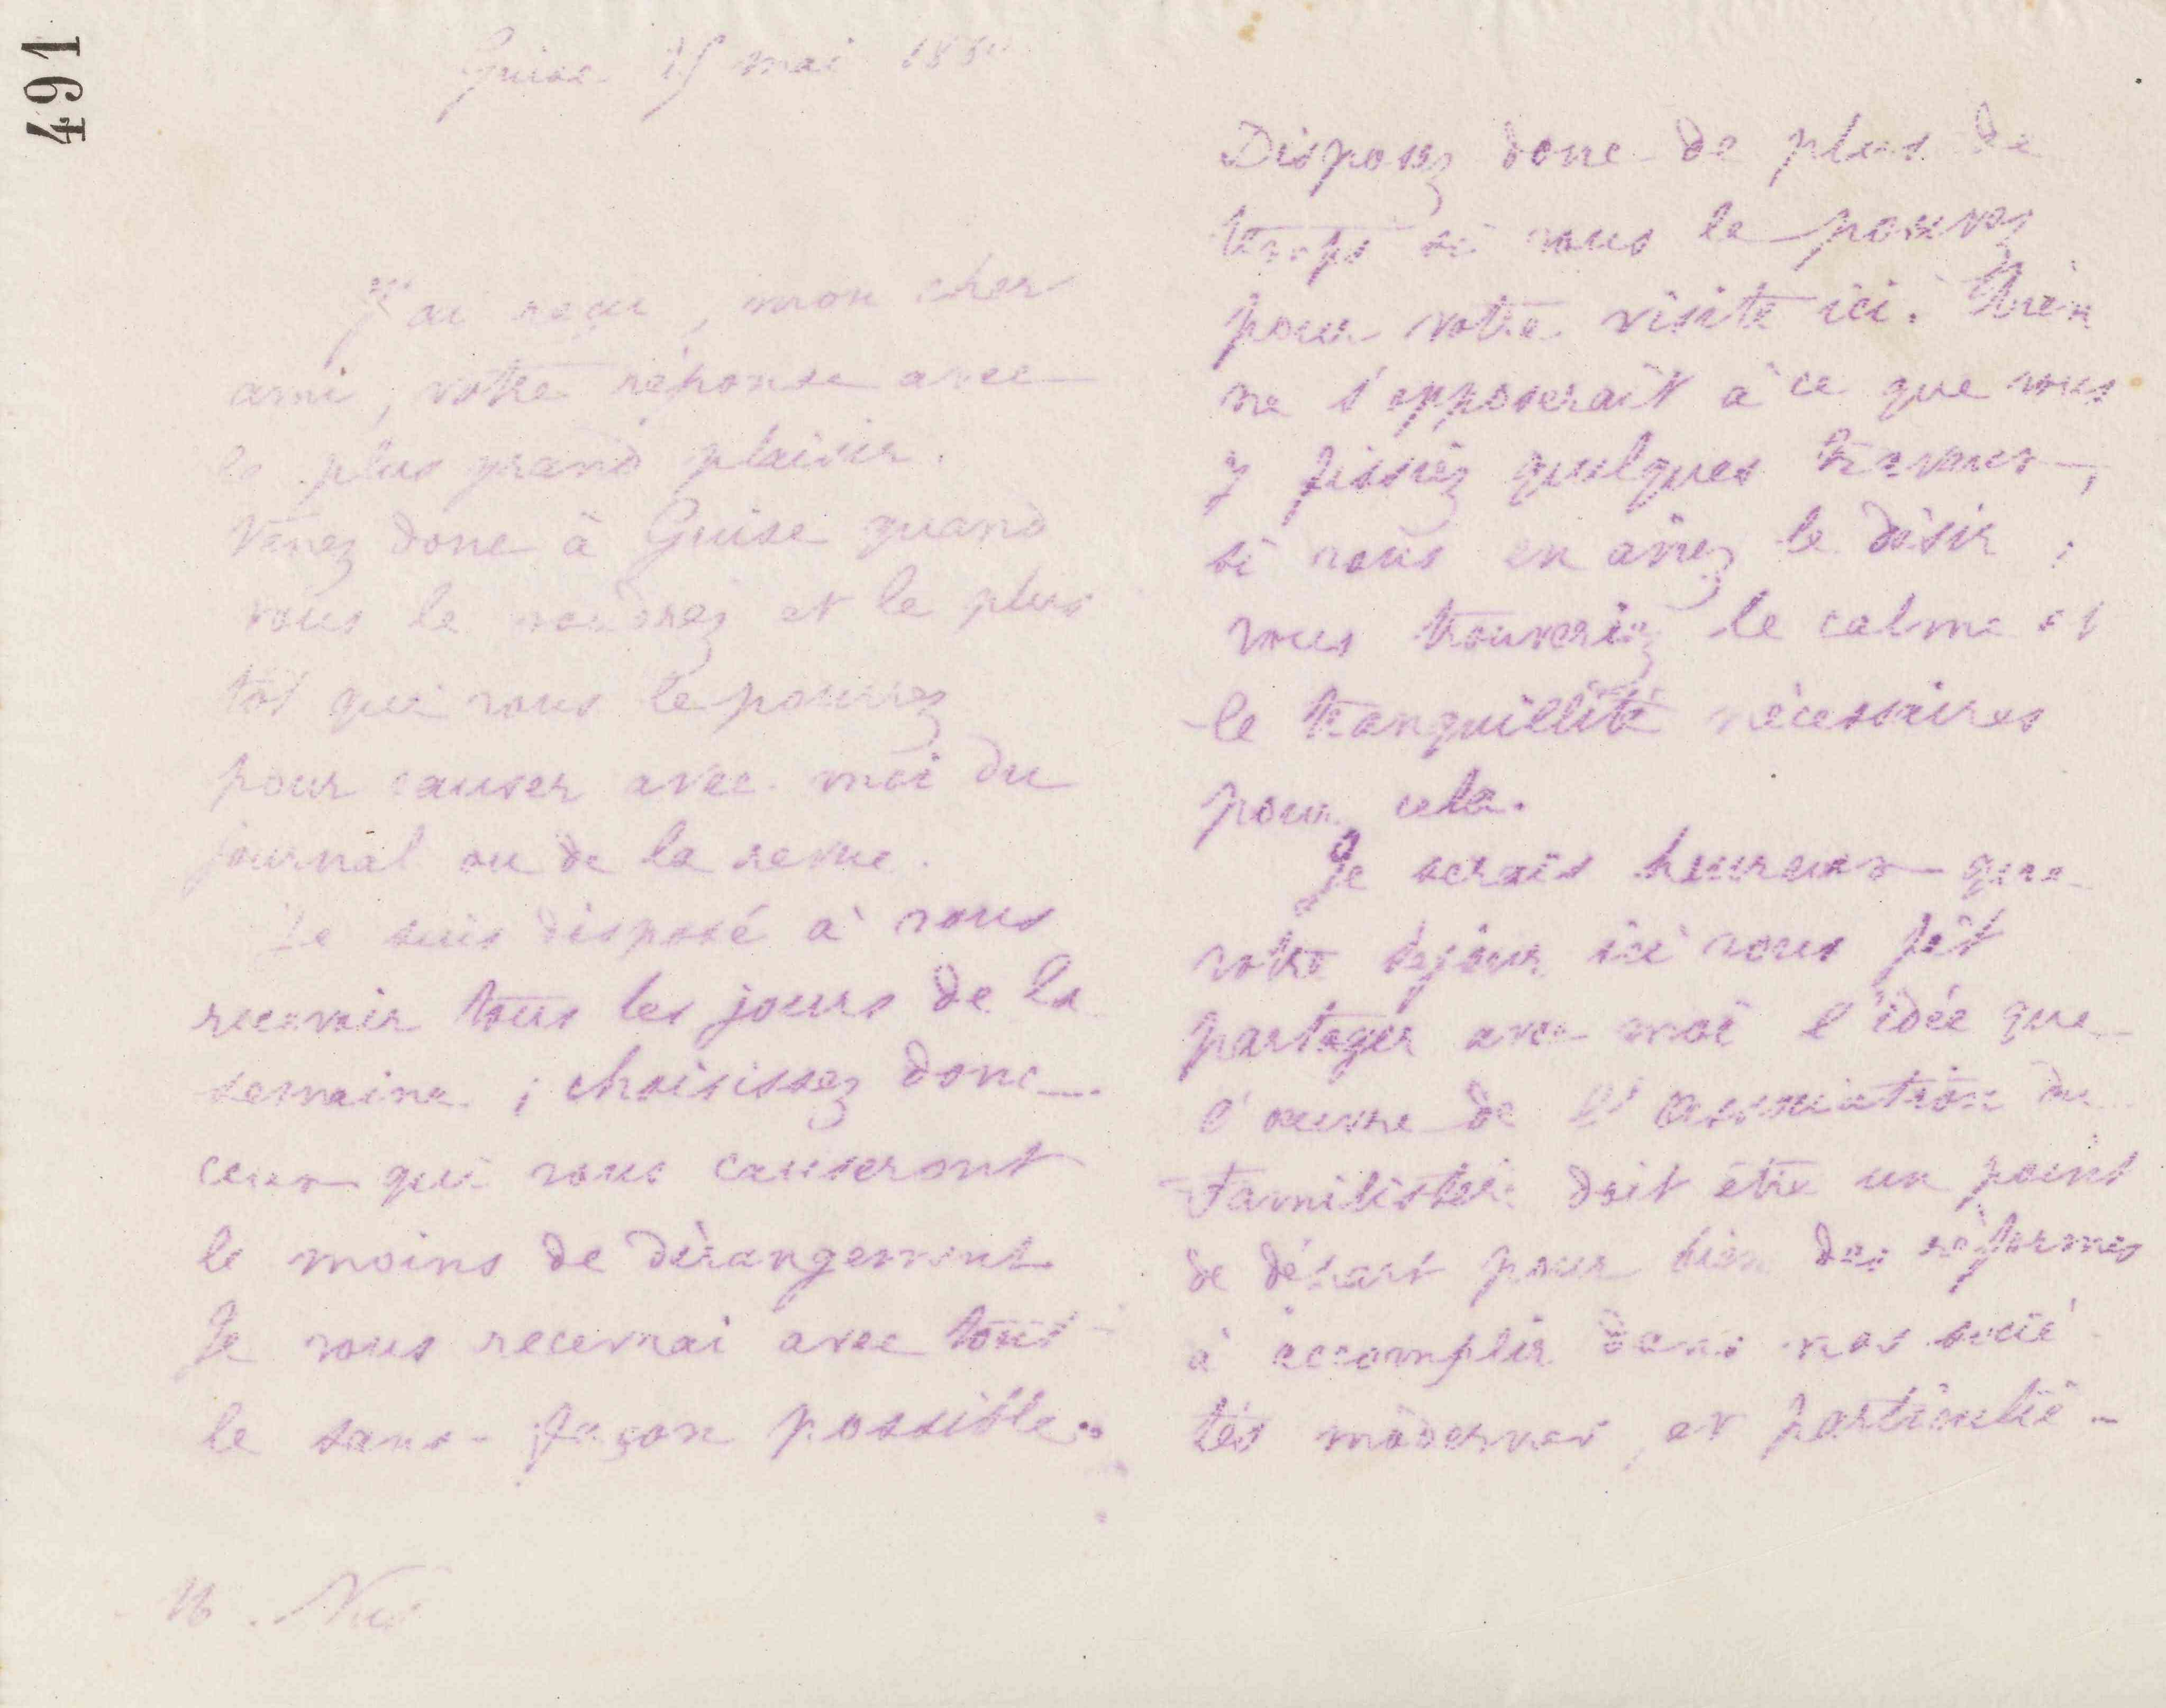 491
Guise 15 mai 188
J'ai reçu, mon cher
ami, votre réponse avec
le plus grand plaisir.
Venez donc à Guise quand
vous le voudrez et le plus
tôt que vous le pourrez
pour causer avec moi du
journal ou de la revue.
Je suis disposé à vous
recevoir tous les jours de la
semaine ; choisissez donc
ceux qui vous causeront
le moins de dérangement
Je vous recevrai avec tout
le sans-façon possible.
M. Nus
Disposez donc de plus de
temps si vous le pouvez
pour votre visite ici. Rien
ne s'opposerait à ce que vous
y fissiez quelques travaux,
si vous en aviez le désir ;
vous trouveriez le calme et
la tranquillité nécessaires
pour cela.
Je serais heureux que
votre séjour ici vous fît
partager avec moi l'idée que
l'œuvre de l'association du
Familistère doit être un point
de départ pour bien des réformes
à accomplir dans nos socié-
tés modernes, et particuliè-